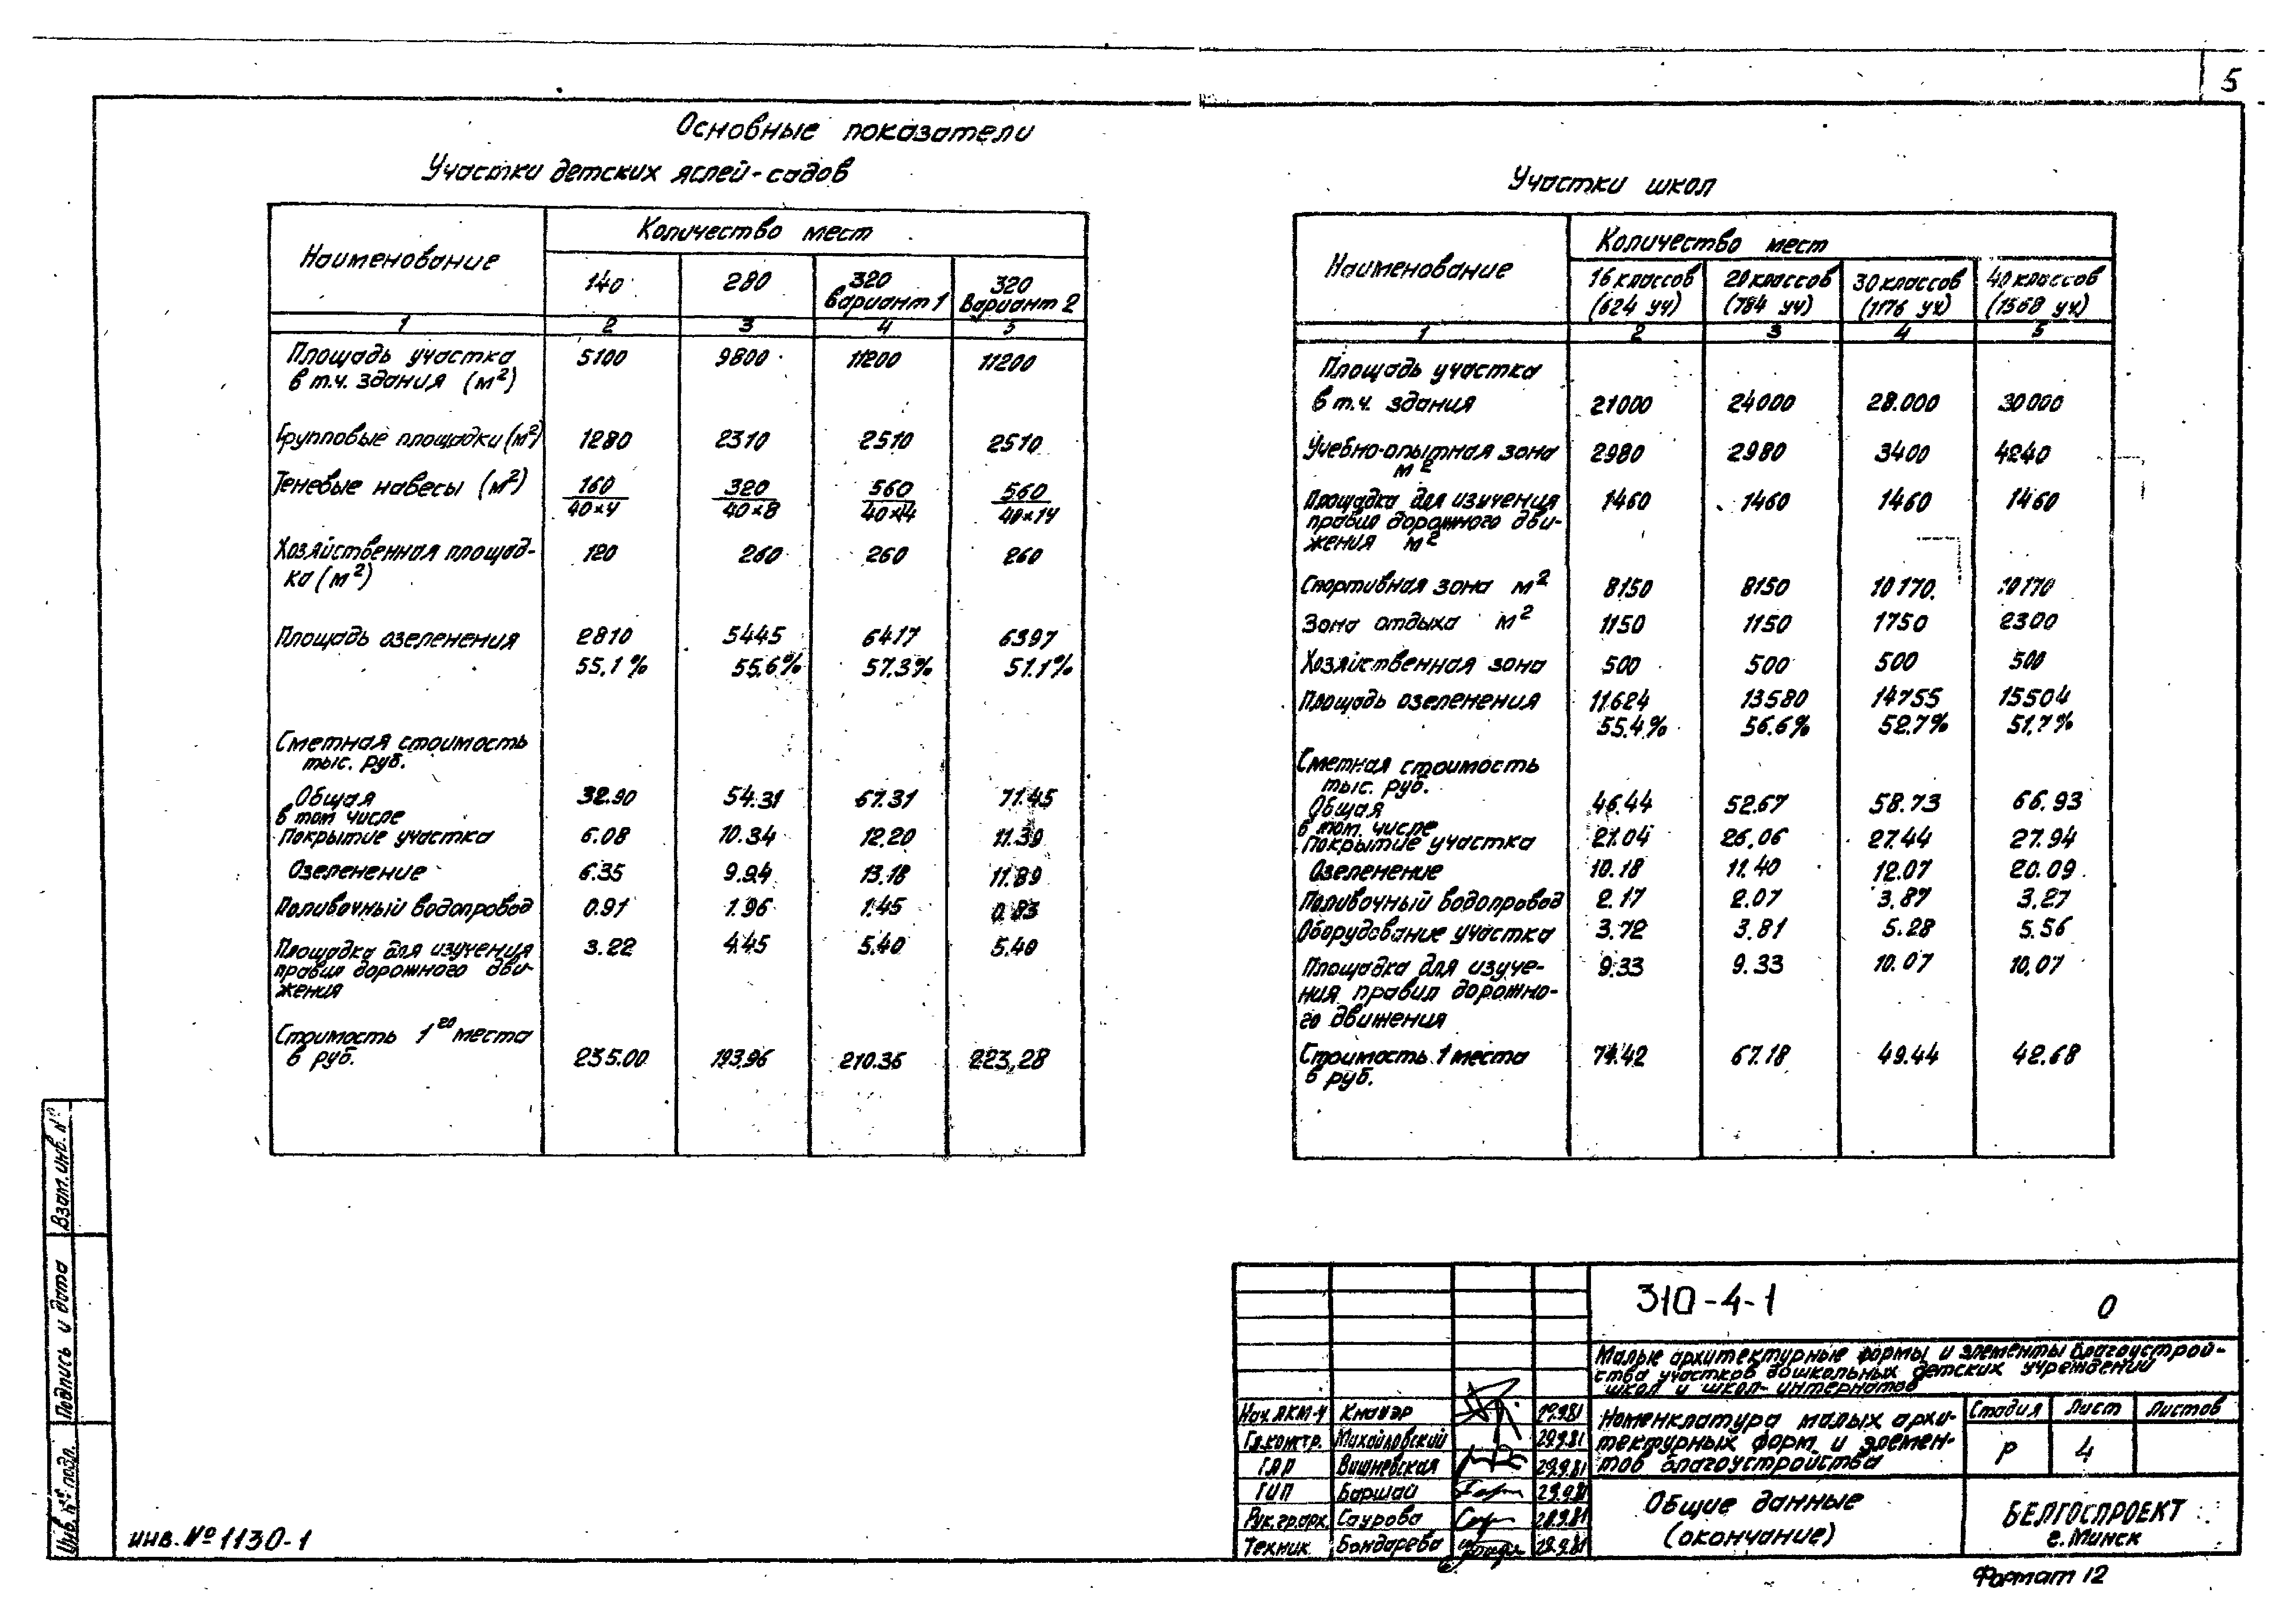 5
Основные показатели
Участки детских яслей-садов
Наименование
Количество мест
140
280
320 вариант 1
320 вариант 2
1 2 3 4 5
Площадь участка 5100 9800 11200 11200
в т.ч. здания (м²)
Групповые площадки (м²) 1280 2310 2510 2510
Теневые навесы (м²) 160 320 560 560
40×4 40×8 40×14 40×14
Хозяйственная площад- 120 260 260 260
ка (м²)
Площадь озеленения 2810 5445 6417 6397
55,1% 55,6% 57.3% 51.1%
Сметная стоимость
тыс. руб.
Общая 32.90 54.31 67.31 71.45
в том числе
Покрытие участка 6.08 10.34 12.20 11.39
Озеленение 6.35 9.94 13.18 11.89
Поливочный водопровод 0.91 1.96 1.45 0.83
Площадка для изучения 3.22 4.45 5.40 5.40
правил дорожного дви-
жения
Стоимость 1го места
в руб. 235.00 193.96 210.36 223,28
Участки школ
Наименование
Количество мест
16 классов 20 классов 30 классов 40 классов
(624 уч) (784 уч) (1176 уч) (1568 уч)
1 2 3 4 5
Площадь участка
в т.ч. здания 21000 24000 28.000 30000
Учебно-опытная зона 2980 2980 3400 4240
м²
Площадка для изучения 1460 1460 1460 1460
правил дорожного дви-
жения м²
Спортивная зона м² 8150 8150 10170. 10170
Зона отдыха м² 1150 1150 1750 2300
Хозяйственная зона 500 500 500 500
Площадь озеленения 11624 13580 14755 15504
55.4% 56.6% 52.7% 51,7%
Сметная стоимость
тыс. руб.
Общая 46.44 52.67 58.73 66.93
в том. числе
Покрытие участка 21.04 26,06 27.44 27.94
Озеленение 10.18 11.40 12.07 20.09
Поливочный водопровод 2.17 2.07 3.87 3.27
Оборудование участка 3.72 3.81 5.28 5.56
Площадка для изуче- 9.33 9.33 10.07 10,07
ния правил дорожно-
го движения
Стоимость 1 места 74.42 67.18 49.44 42.68
в руб.
310-4-1 0
Малые архитектурные формы и элементы благоустрой-
ства участков дошкольных детских учреждений
школ и школ-интернатов
Нач. АКМ-4 Кнауэр 29.9.81
Гл.констр. Михайловский 29.9.81
ГАР Вишневская 29.9.81
ГИП Баршай 29.9.81
Рук.гр.арх. Саурова 28.9.81
Техник Бондарева 28.9.81
Номенклатура малых архи-
тектурных форм и элемен-
тов благоустройства
Стадия Лист Листов
Р 4
Общие данные
(окончание)
БЕЛГОСПРОЕКТ
г. Минск
Формат 12
Взам. инв. №
Подпись и дата
Инв. № подл.
инв. № 1130-1